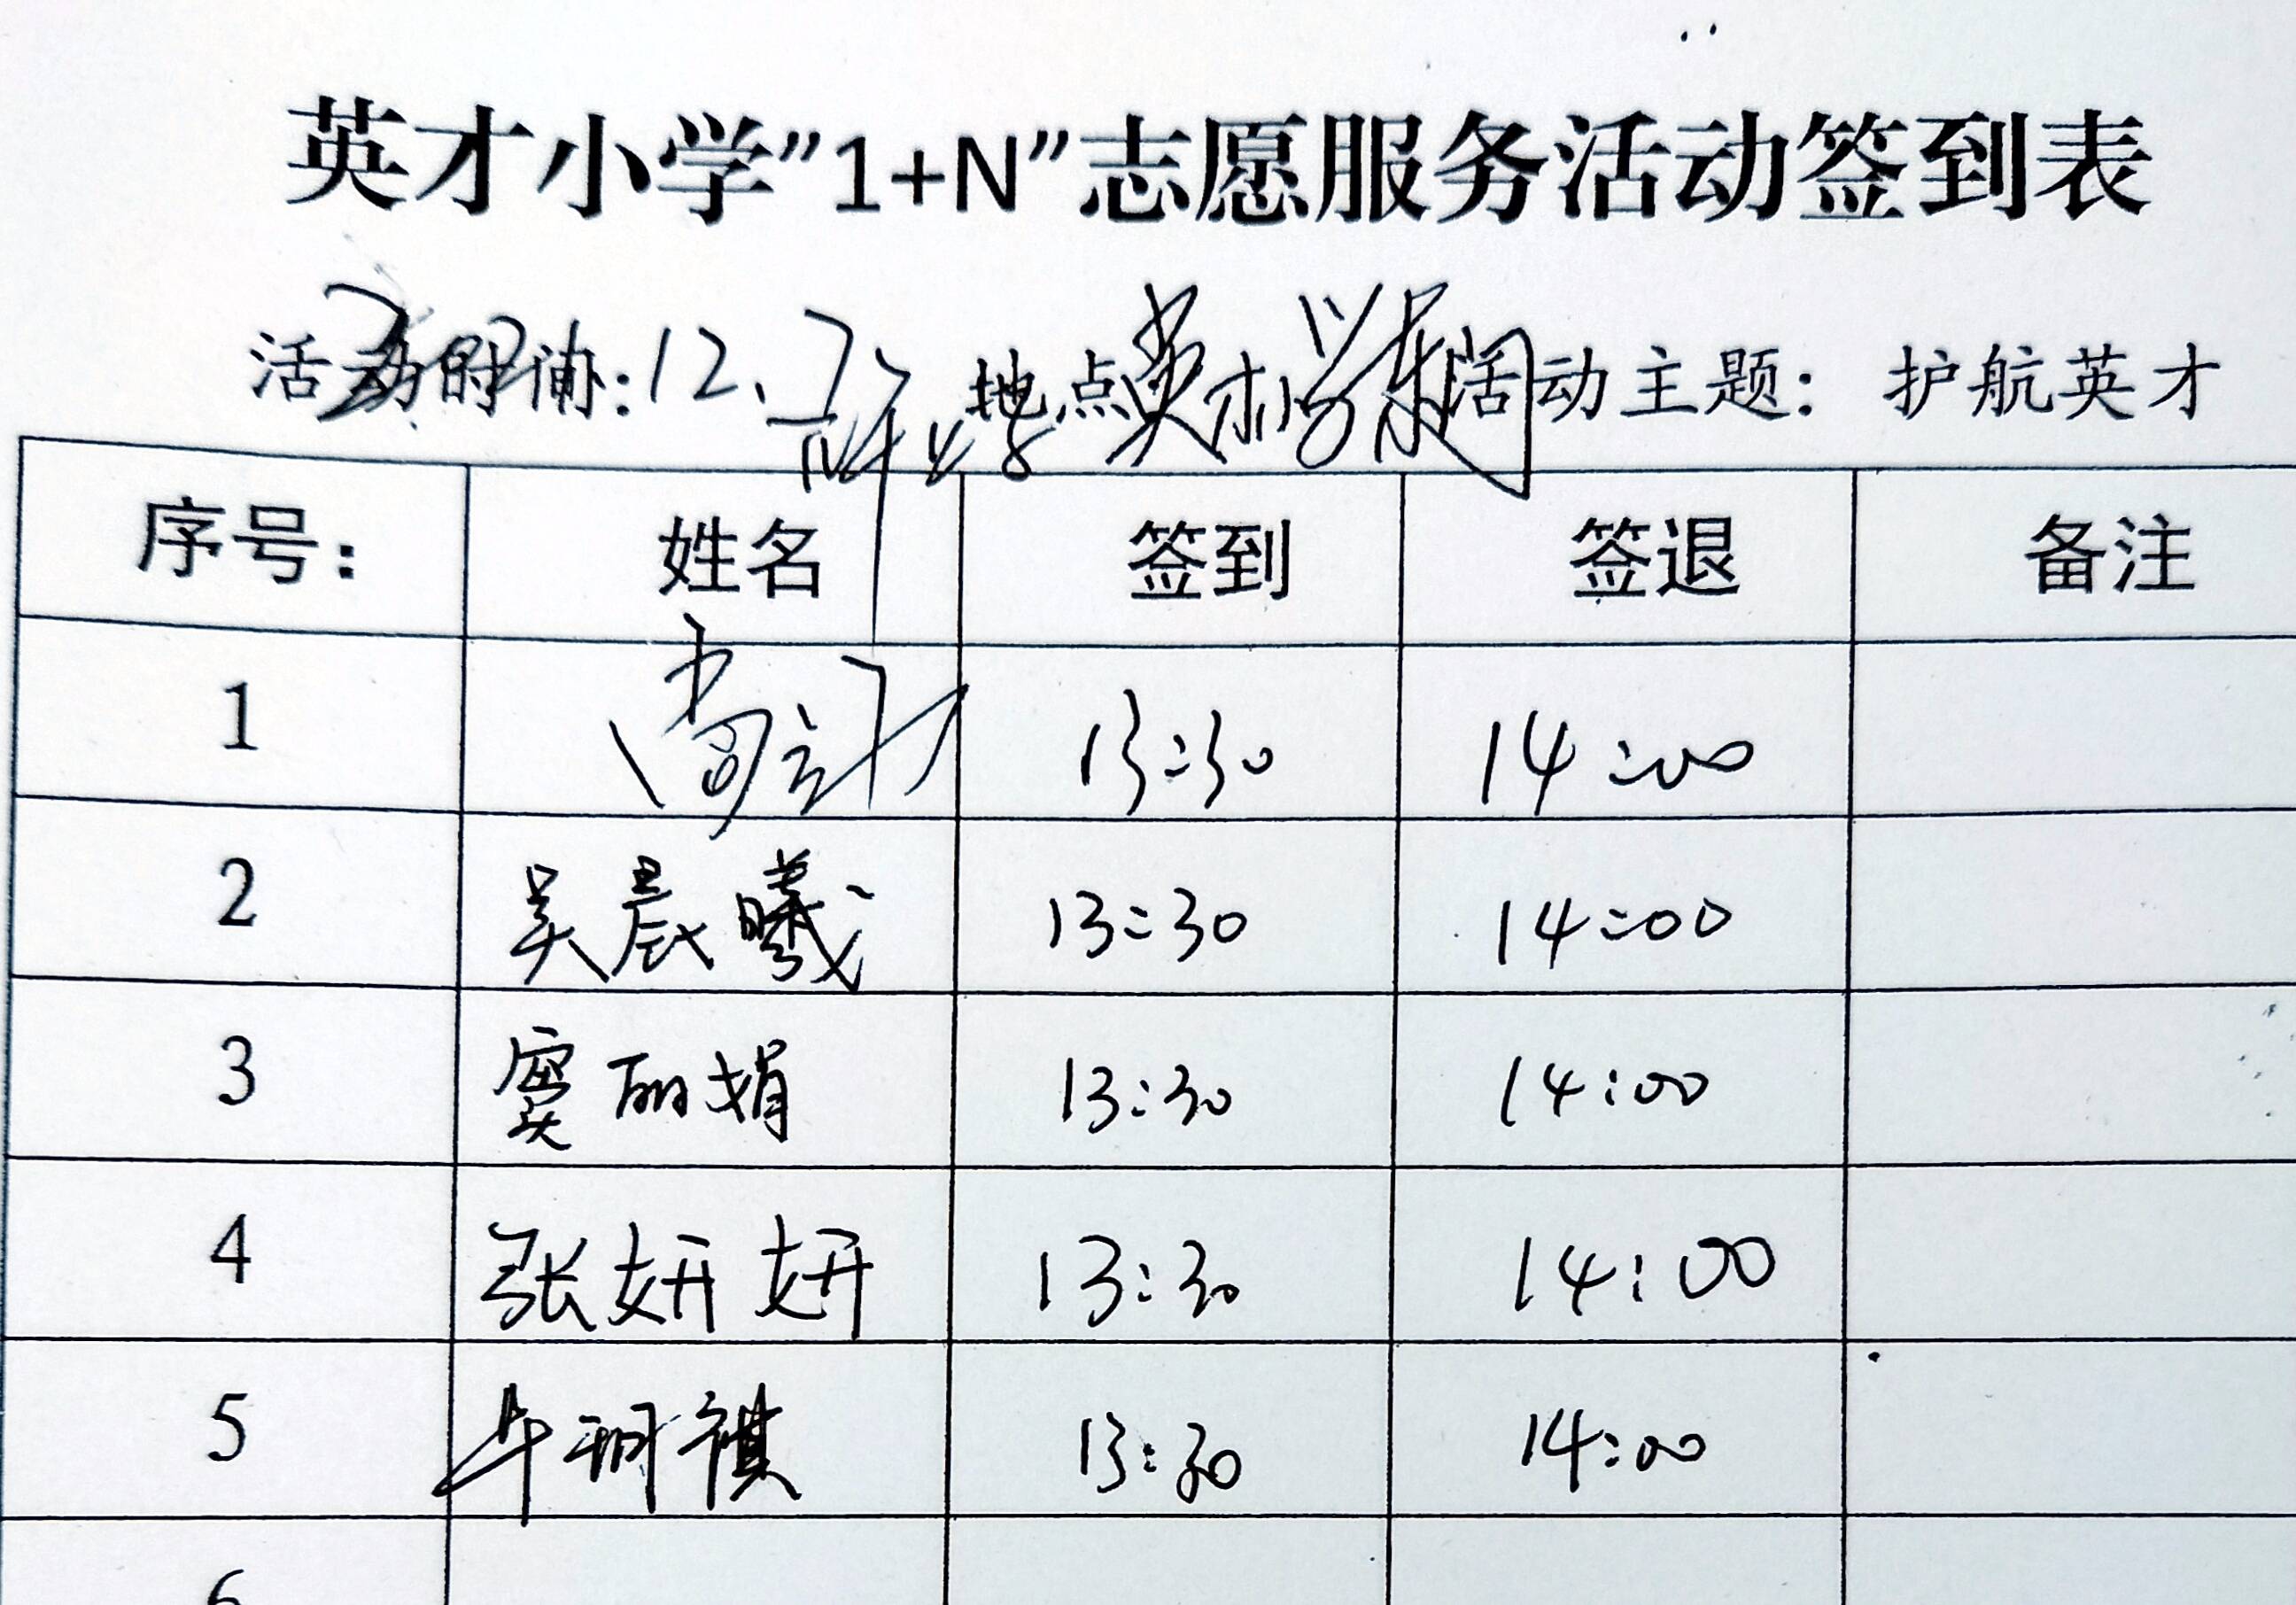 英才小学”1+N”志愿服务活动签到表
活动时间:12.7 下午 地点英才小学东门活动主题：护航英才
序号： 姓名 签到 签退 备注
1 13:30 14:00
2 吴晨曦 13:30 14:00
3 窦丽娟 13:30 14:00
4 张妍妍 13:30 14:00
5 牟珊祺 13:30 14:00
6